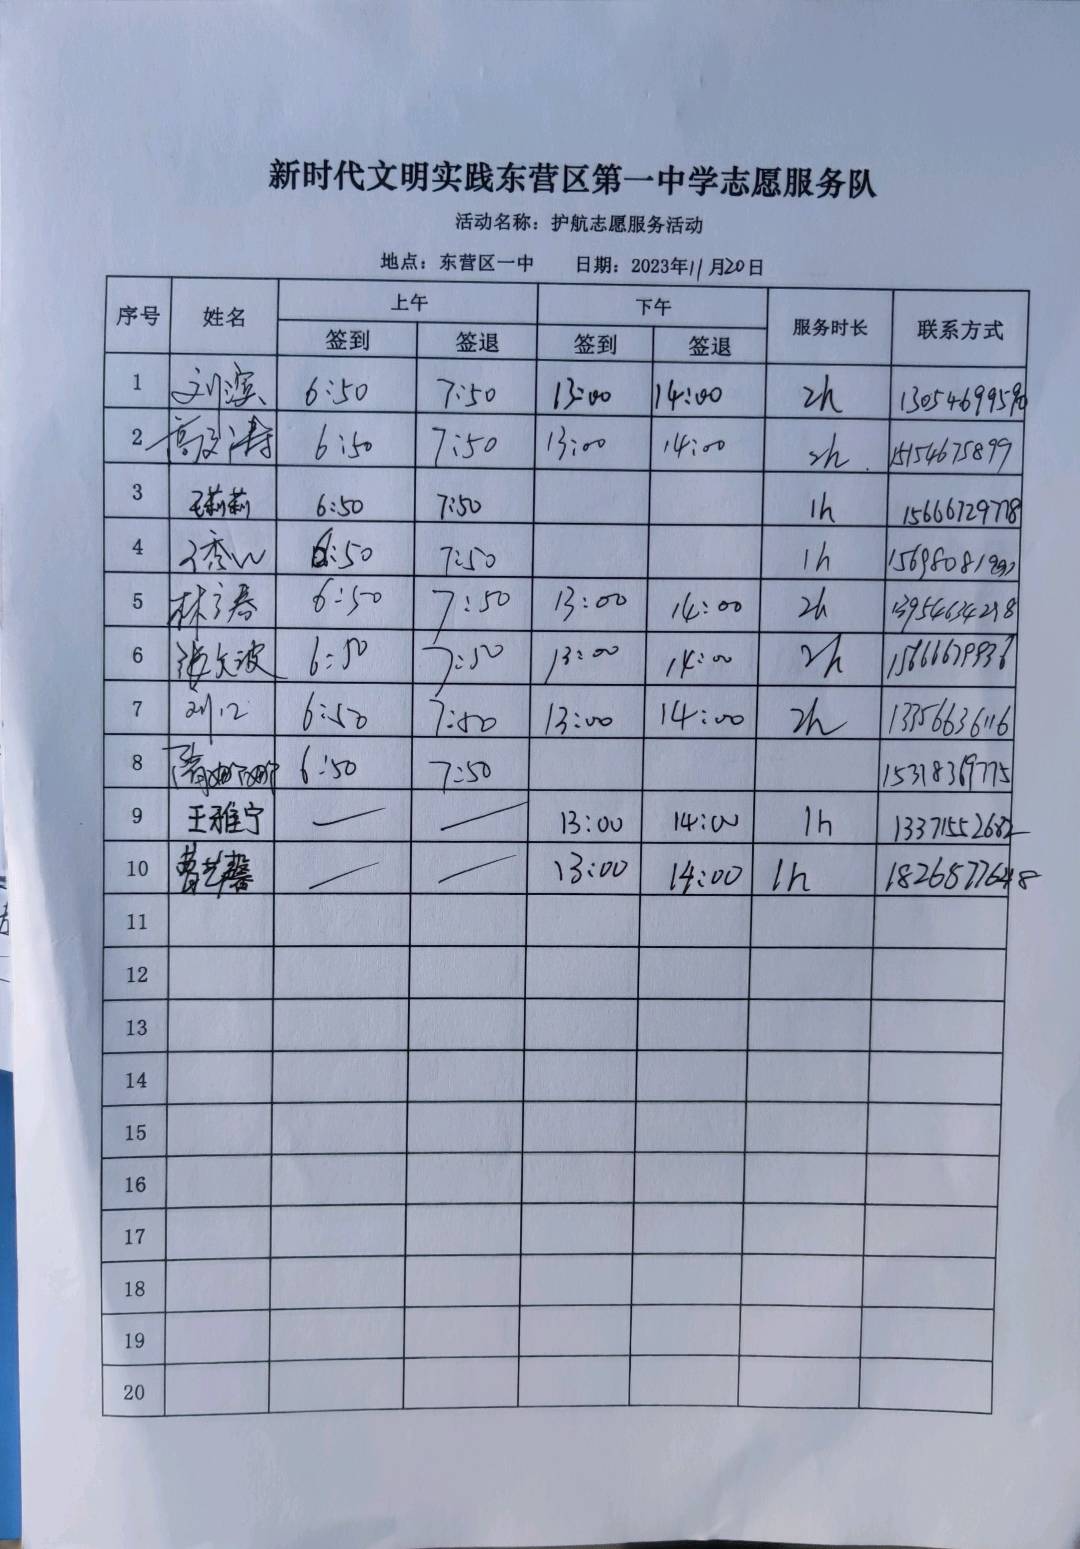 新时代文明实践东营区第一中学志愿服务队
活动名称：护航志愿服务活动
地点：东营区一中 日期：2023年11月20日
序号 姓名 上午 下午 服务时长 联系方式
签到 签退 签到 签退
1 刘滨 6:50 7:50 13:00 14:00 2h
2 6:50 7:50 13:00 14:00 2h 15154675899
3 王莉莉 6:50 7:50 1h 15666729778
4 6:50 7:50 1h
5 6:50 7:50 13:00 14:00 2h
6 6:50 7:50 13:00 14:00 2h
7 6:50 7:50 13:00 14:00 2h 13356636116
8 隋娜娜 6:50 7:50 15318369775
9 王雅宁 — — 13:00 14:00 1h
10 曹艺馨 — — 13:00 14:00 1h
11
12
13
14
15
16
17
18
19
20